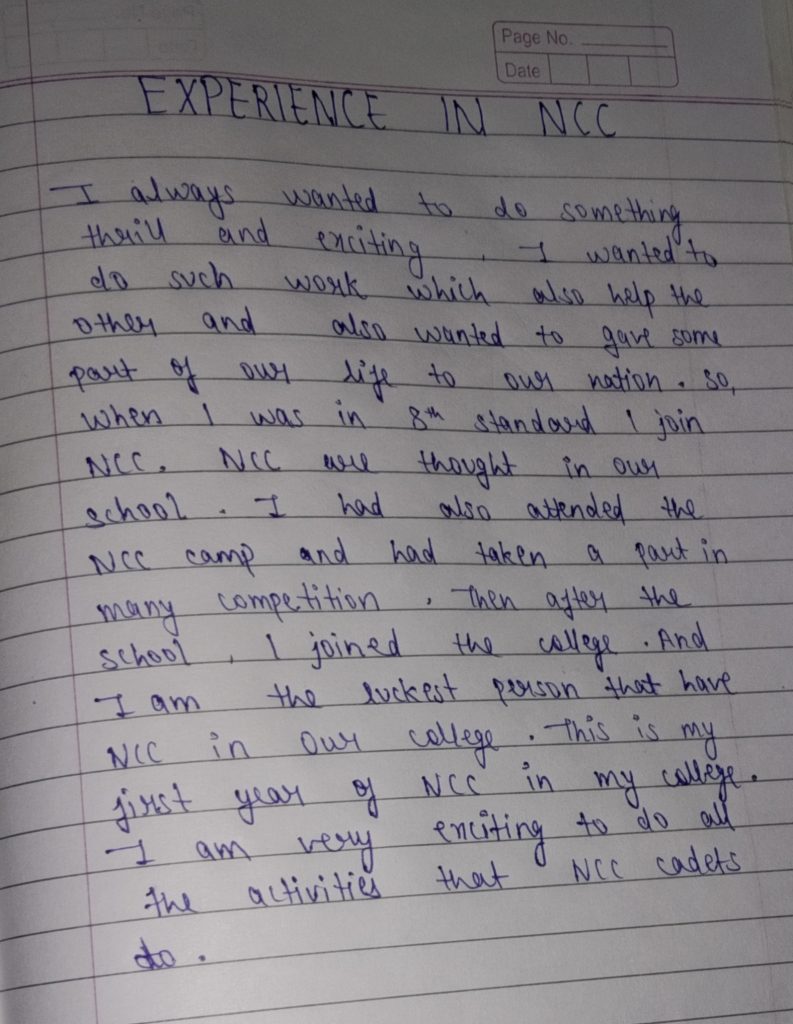 Page No.
Date
EXPERIENCE IN NCC
I always wanted to do something
thrill and exciting , I wanted to
do such work which also help the
other and also wanted to gave some
part of our life to our nation . So,
when I was in 8th standard I join
NCC. NCC are thought in our
school . I had also attended the
NCC camp and had taken a part in
many competition , Then after the
school , I joined the college . And
I am the luckest person that have
NCC in our college . This is my
first year of NCC in my college .
I am very exciting to do all
the activities that NCC cadets
do .